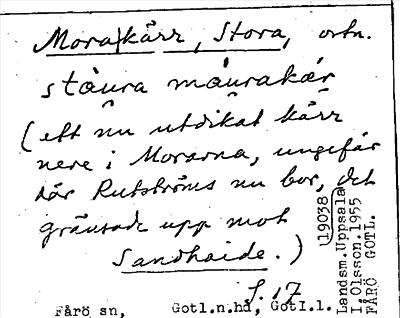 Mora|kärr, Stora, ortn.
ståura måurakär
(ett nu utdikat kärr
nere i Morarna, ungefär
där Rutströms nu bor, det
gränsade upp mot
Sandhaide.)
S. 17
Fårö sn, Gotl.n.hd, Gotl.l.
19038
Landsm.Uppsala
I.Olsson.1955
FÅRÖ GOTL.